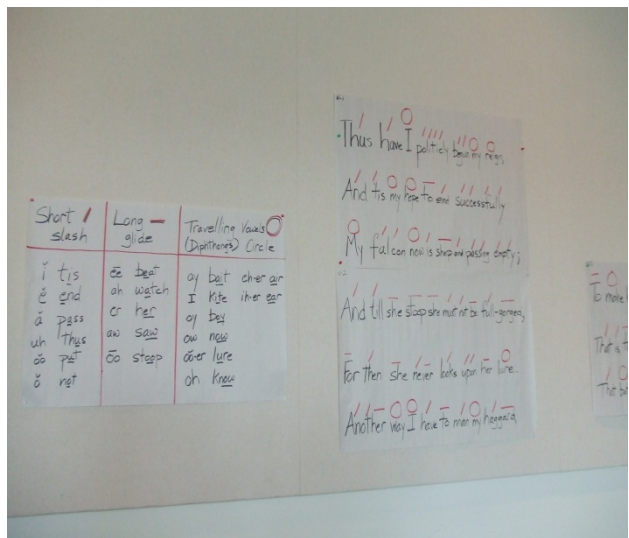 Short / Long — Travelling Vowels O
slash glide (Diphthongs) Circle
ĭ tis ēē beat ay bait eh-er air
ĕ end ah watch I kite ih-er ear
ă pass er her oy boy
uh thus aw saw ow now
ŏŏ put ōō stoop ŏŏ-er lure
ŏ not oh know
Thus have I politicly begun my reign,
And tis my hope to end successfully
My falcon now is sharp and passing empty;
And till she stoop she must not be full-gorged,
For then she never looks upon her lure.
Another way I have to man my haggard,
To make h
That is t
That bat